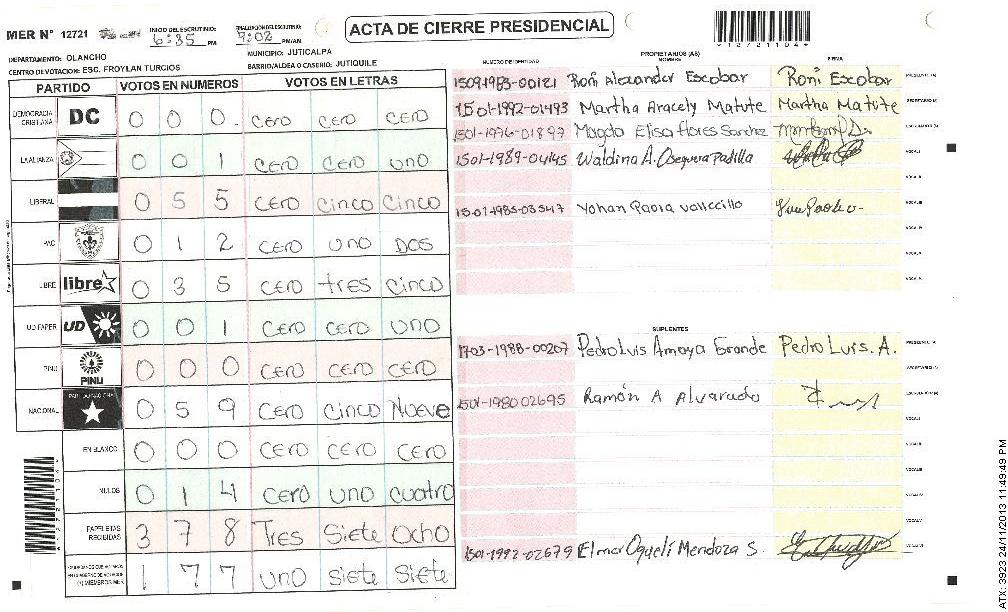 MER N° 12721
INICIO DEL ESCRUTINIO: 6:35 PM
FINALIZACIÓN DEL ESCRUTINIO: 9:02 PM/AM
ACTA DE CIERRE PRESIDENCIAL
*12721104*
DEPARTAMENTO: OLANCHO
MUNICIPIO: JUTICALPA
CENTRO DE VOTACION: ESC. FROYLAN TURCIOS
BARRIO/ALDEA O CASERIO: JUTIQUILE
PARTIDO VOTOS EN NUMEROS VOTOS EN LETRAS
DEMOCRACIA CRISTIANA DC 0 0 0. CERO CERO CERO
LA ALIANZA 0 0 1 CERO CERO UNO
LIBERAL 0 5 5 CERO CINCO CINCO
PAC 0 1 2 CERO UNO DOS
LIBRE libre 0 3 5 CERO tres CINCO
UD FAPER UD 0 0 1 CERO CERO UNO
PINU PINU 0 0 0 CERO CERO CERO
NACIONAL PARTIDO NACIONAL 0 5 9 CERO CINCO NUEVE
EN BLANCO 0 0 0 CERO CERO CERO
NULOS 0 1 4 CERO UNO CUATRO
PAPELETAS RECIBIDAS 3 7 8 TRES SIETE OCHO
1 7 7 UNO SIETE SIETE
PROPIETARIOS (AS)
NUMERO DE IDENTIDAD NOMBRE FIRMA
1509-1983-00121 Roni Alexander Escobar Roni Escobar PRESIDENTE (A)
1501-1992-01493 Martha Aracely Matute Martha Matute SECRETARIO (A)
1501-1976-01897 Magda Elisa flores Sanchez ESCRUTADOR (A)
1501-1989-04145 Waldina A. Oseguera Padilla VOCAL I
VOCAL II
1501-1985-03547 Yohan Paola Vallecillo VOCAL III
VOCAL IV
VOCAL V
VOCAL VI
SUPLENTES
1703-1988-00207 Pedro Luis Amaya Grande Pedro Luis. A. PRESIDENTE (A)
SECRETARIO (A)
1501-1980 02695 Ramón A Alvarado ESCRUTADOR (A)
VOCAL I
VOCAL II
VOCAL III
VOCAL IV
VOCAL V
1501-1992-02679 Elmer Oqueli Mendoza S. VOCAL VI
ATX: 3923 24/11/2013 11:49:49 PM